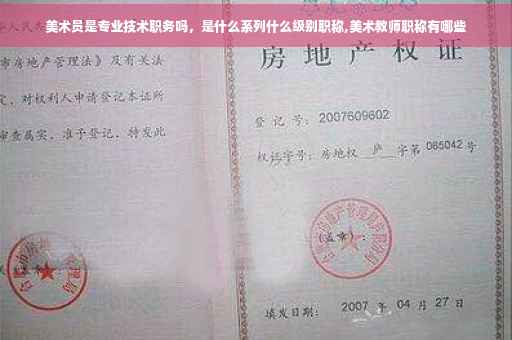 美术员是专业技术职务吗，是什么系列什么级别职称,美术教师职称有哪些
人民共
市房地产管理法》及有关法
定，对权利人申请登记本证所
审查属实，准予登记，特发此
房地产权证
登记号：2007609602
权证字号：房地权 庐 字第 065042 号
(盖章)：
填发日期： 2007 年 04 月 27 日